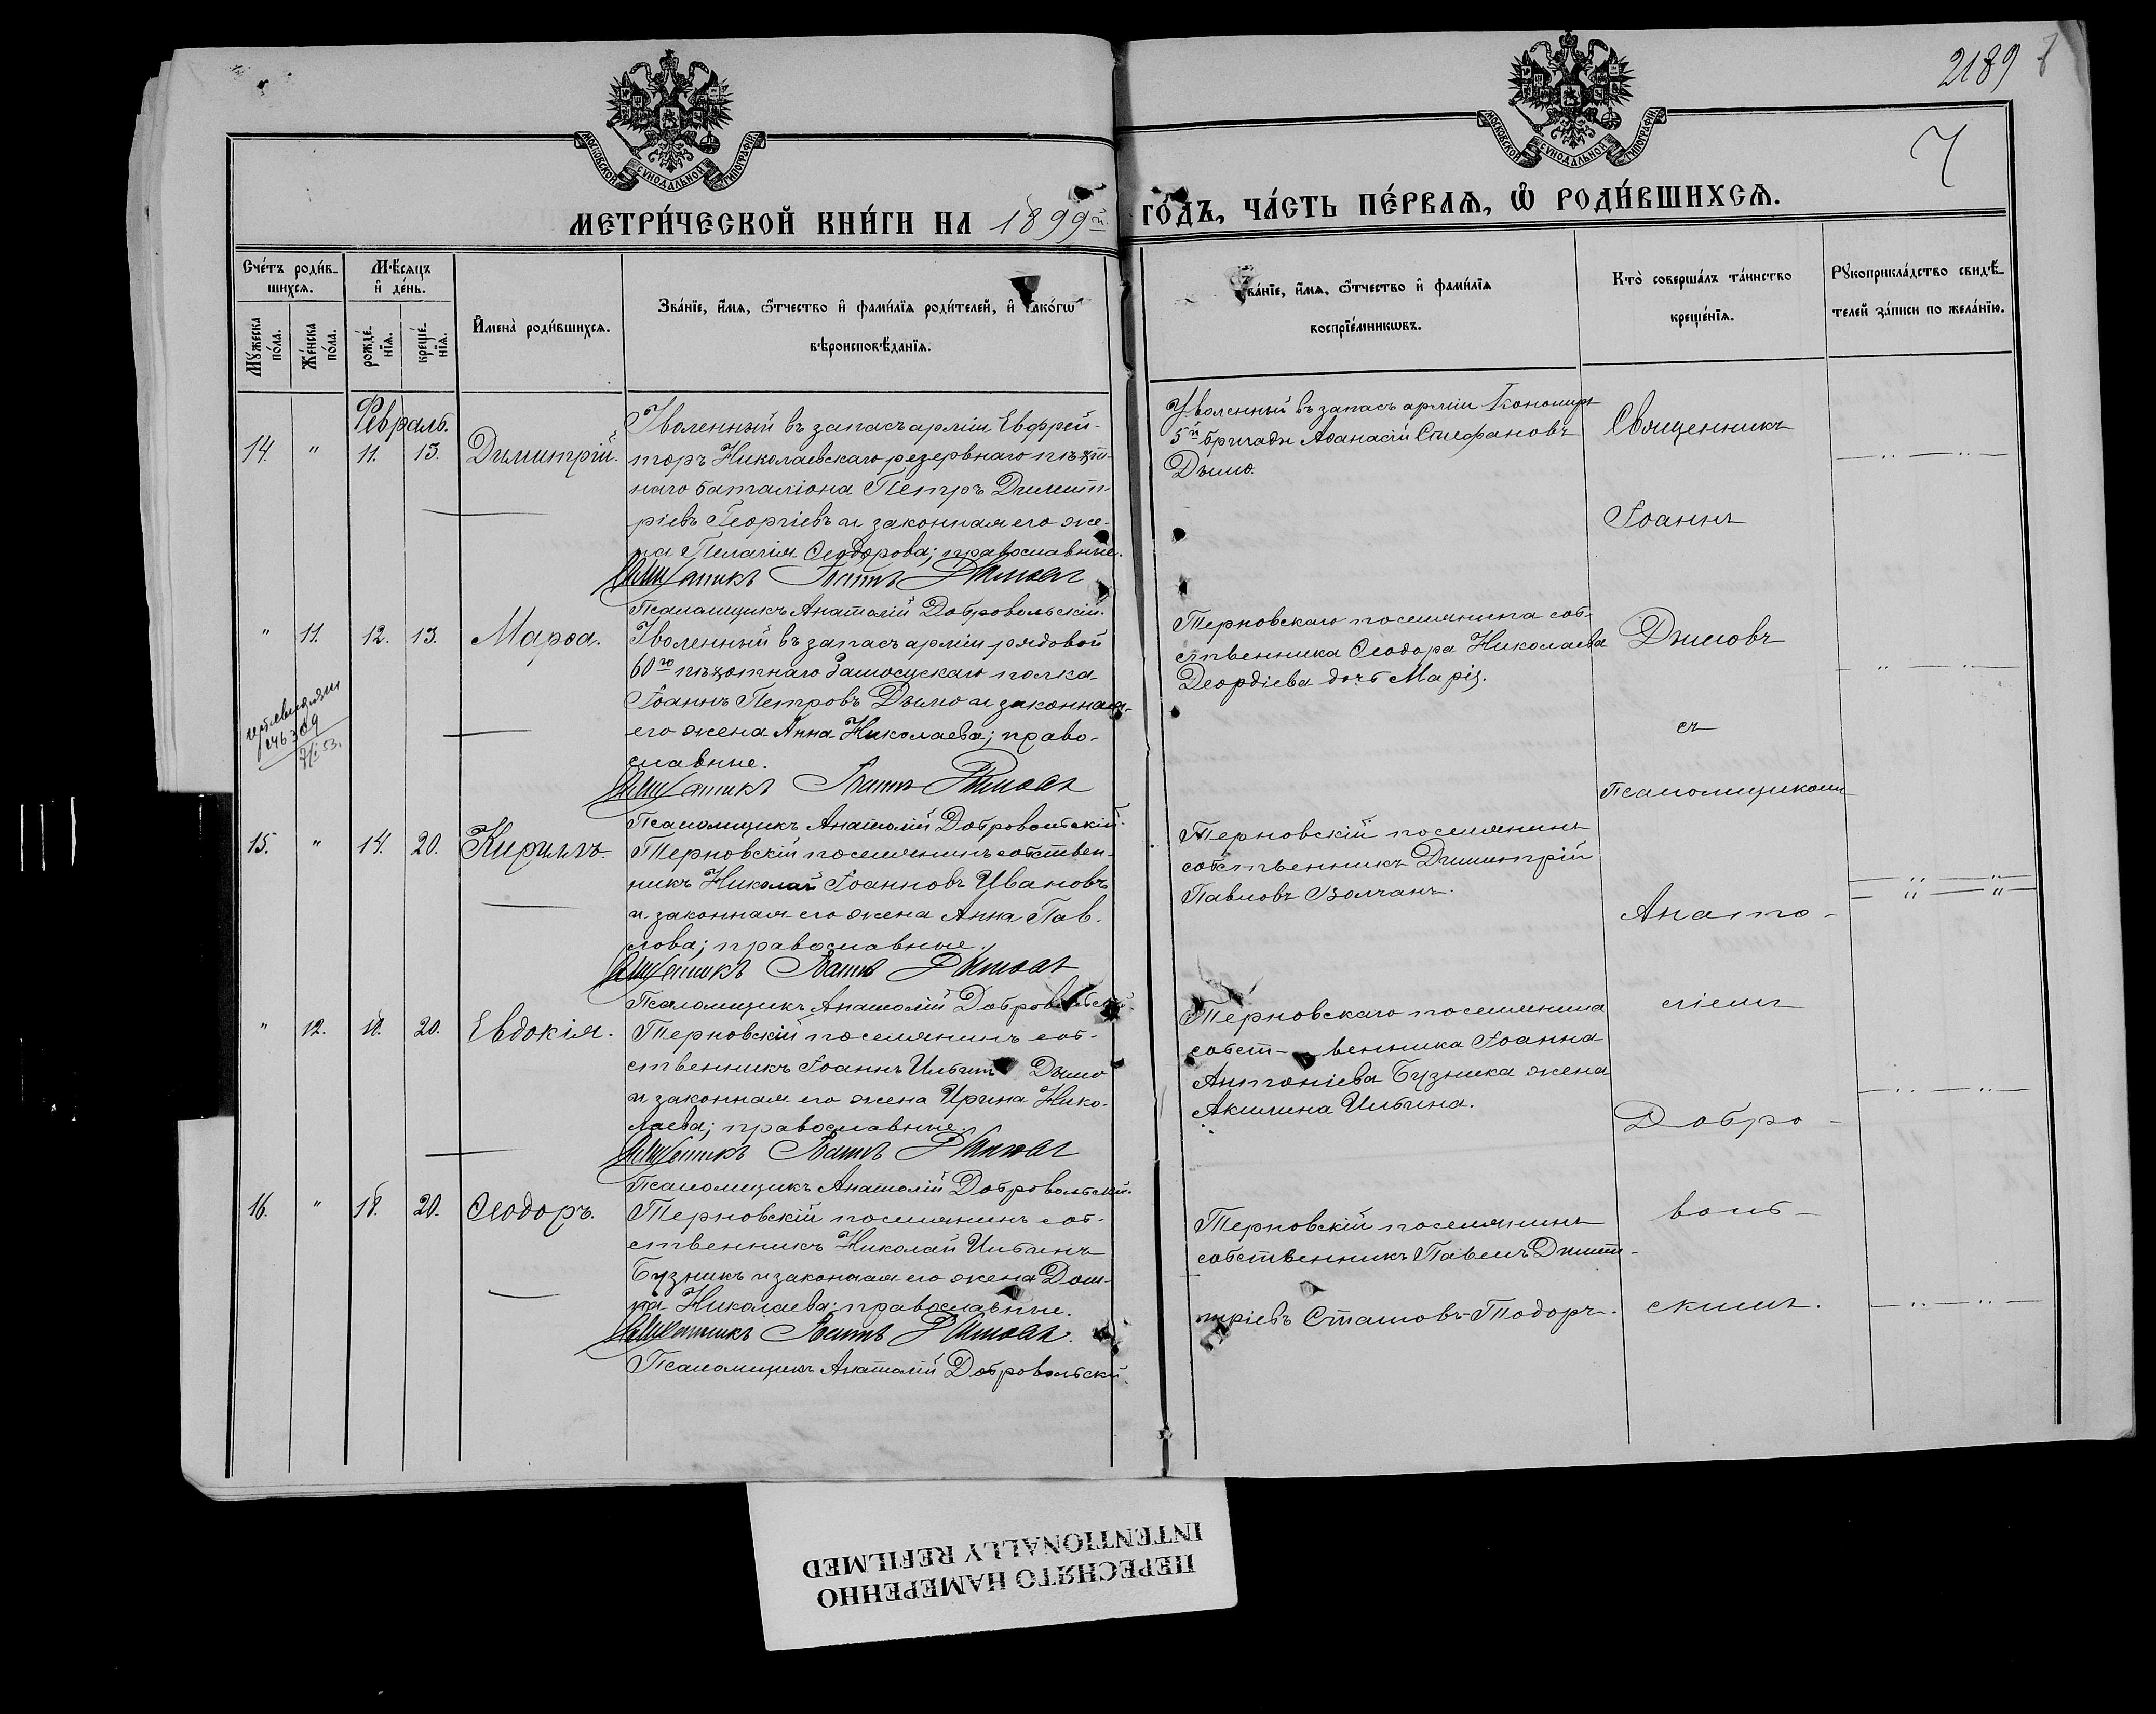 2189
7
МОСКОВСКОЙ СѴНОДАЛЬНОЙ ТИПОГРАФІИ
МОСКОВСКОЙ СѴНОДАЛЬНОЙ ТИПОГРАФІИ
МЕТРИ́ЧЕСКОЙ КНИ́ГИ НА 1899й ГО́ДЪ, ЧА́СТЬ ПЕ́РВАѦ, Ѽ РОДИ́ВШИХСѦ.
Сче́тъ роди́в-
шихсѧ.
Мꙋ́жеска по́ла.
Же́нска по́ла.
Мѣ́сѧцъ
и҆ де́нь.
рожде́-
нїѧ.
креще́-
нїѧ.
И҆мена̀ роди́вшихсѧ.
Зва́нїе, и҆́мѧ, ѻ҆́тчество и҆ фами́лїѧ роди́телей, и҆ како́гѡ
вѣроисповѣ́данїѧ.
Зва́нїе, и҆́мѧ, ѻ҆́тчество и҆ фами́лїѧ
воспрїе́мникѡвъ.
Кто̀ соверша́лъ та́инство
креще́нїѧ.
Рꙋкоприкла́дство свидѣ́-
телей за́писи по жела́нїю.
Февраль.
14. " 11. 13. Димитрій.
Уволенный въ запасъ арміи Ефрей-
торъ Николаевскаго резервнаго пѣхот-
наго баталіона Петръ Димит-
ріевъ Георгіевъ и законная его же-
на Пелагія Ѳеодорова; православные.
Священникъ Іоаннъ Дымовъ
Псаломщикъ Анатолій Добровольскій.
Уволенный въ запасъ арміи
5й бригады Аѳанасій Стефановъ
Дымо.
" 11. 12. 13. Марѳа.
Уволенный въ запасъ арміи рядовой
60го пѣхотнаго Замосцскаго полка
Іоаннъ Петровъ Дымо и законная
его жена Анна Николаева; право-
славные.
Священникъ Іоаннъ Дымовъ
Псаломщикъ Анатолій Добровольскій.
Терновскаго поселянина соб-
ственника Ѳеодора Николаева
Деордіева дочь Марія.
15. " 14. 20. Кириллъ.
Терновскій поселянинъ собствен-
никъ Николай Іоанновъ Ивановъ
и законная его жена Анна Пав-
лова; православные.
Священникъ Іоаннъ Дымовъ
Псаломщикъ Анатолій Добровольскій.
Терновскій поселянинъ
собственникъ Димитрій
Павловъ Волчанъ.
" 12. 18. 20. Евдокія.
Терновскій поселянинъ соб-
ственникъ Іоаннъ Ильинъ Дымо
и законная его жена Ирина Нико-
лаева; православные.
Священникъ Іоаннъ Дымовъ
Псаломщикъ Анатолій Добровольскій.
Терновскаго поселянина
собст- венника Іоанна
Антоніева Бузника жена
Акилина Ильина.
16. " 18. 20. Ѳеодоръ.
Терновскій поселянинъ соб-
ственникъ Николай Ильинъ
Бузникъ и законная его жена Дом-
на Николаева; православные.
Священникъ Іоаннъ Дымовъ.
Псаломщикъ Анатолій Добровольскій
Терновскій поселянинъ
собственникъ Павелъ Димит-
ріевъ Стамовъ-Тодоръ.
Священникъ
Іоаннъ
Дымовъ
съ
псаломщикомъ
Анато-
ліемъ
Добро-
воль-
скимъ.
ПЕРЕСНЯТО НАМЕРЕННО
INTENTIONALLY REFILMED